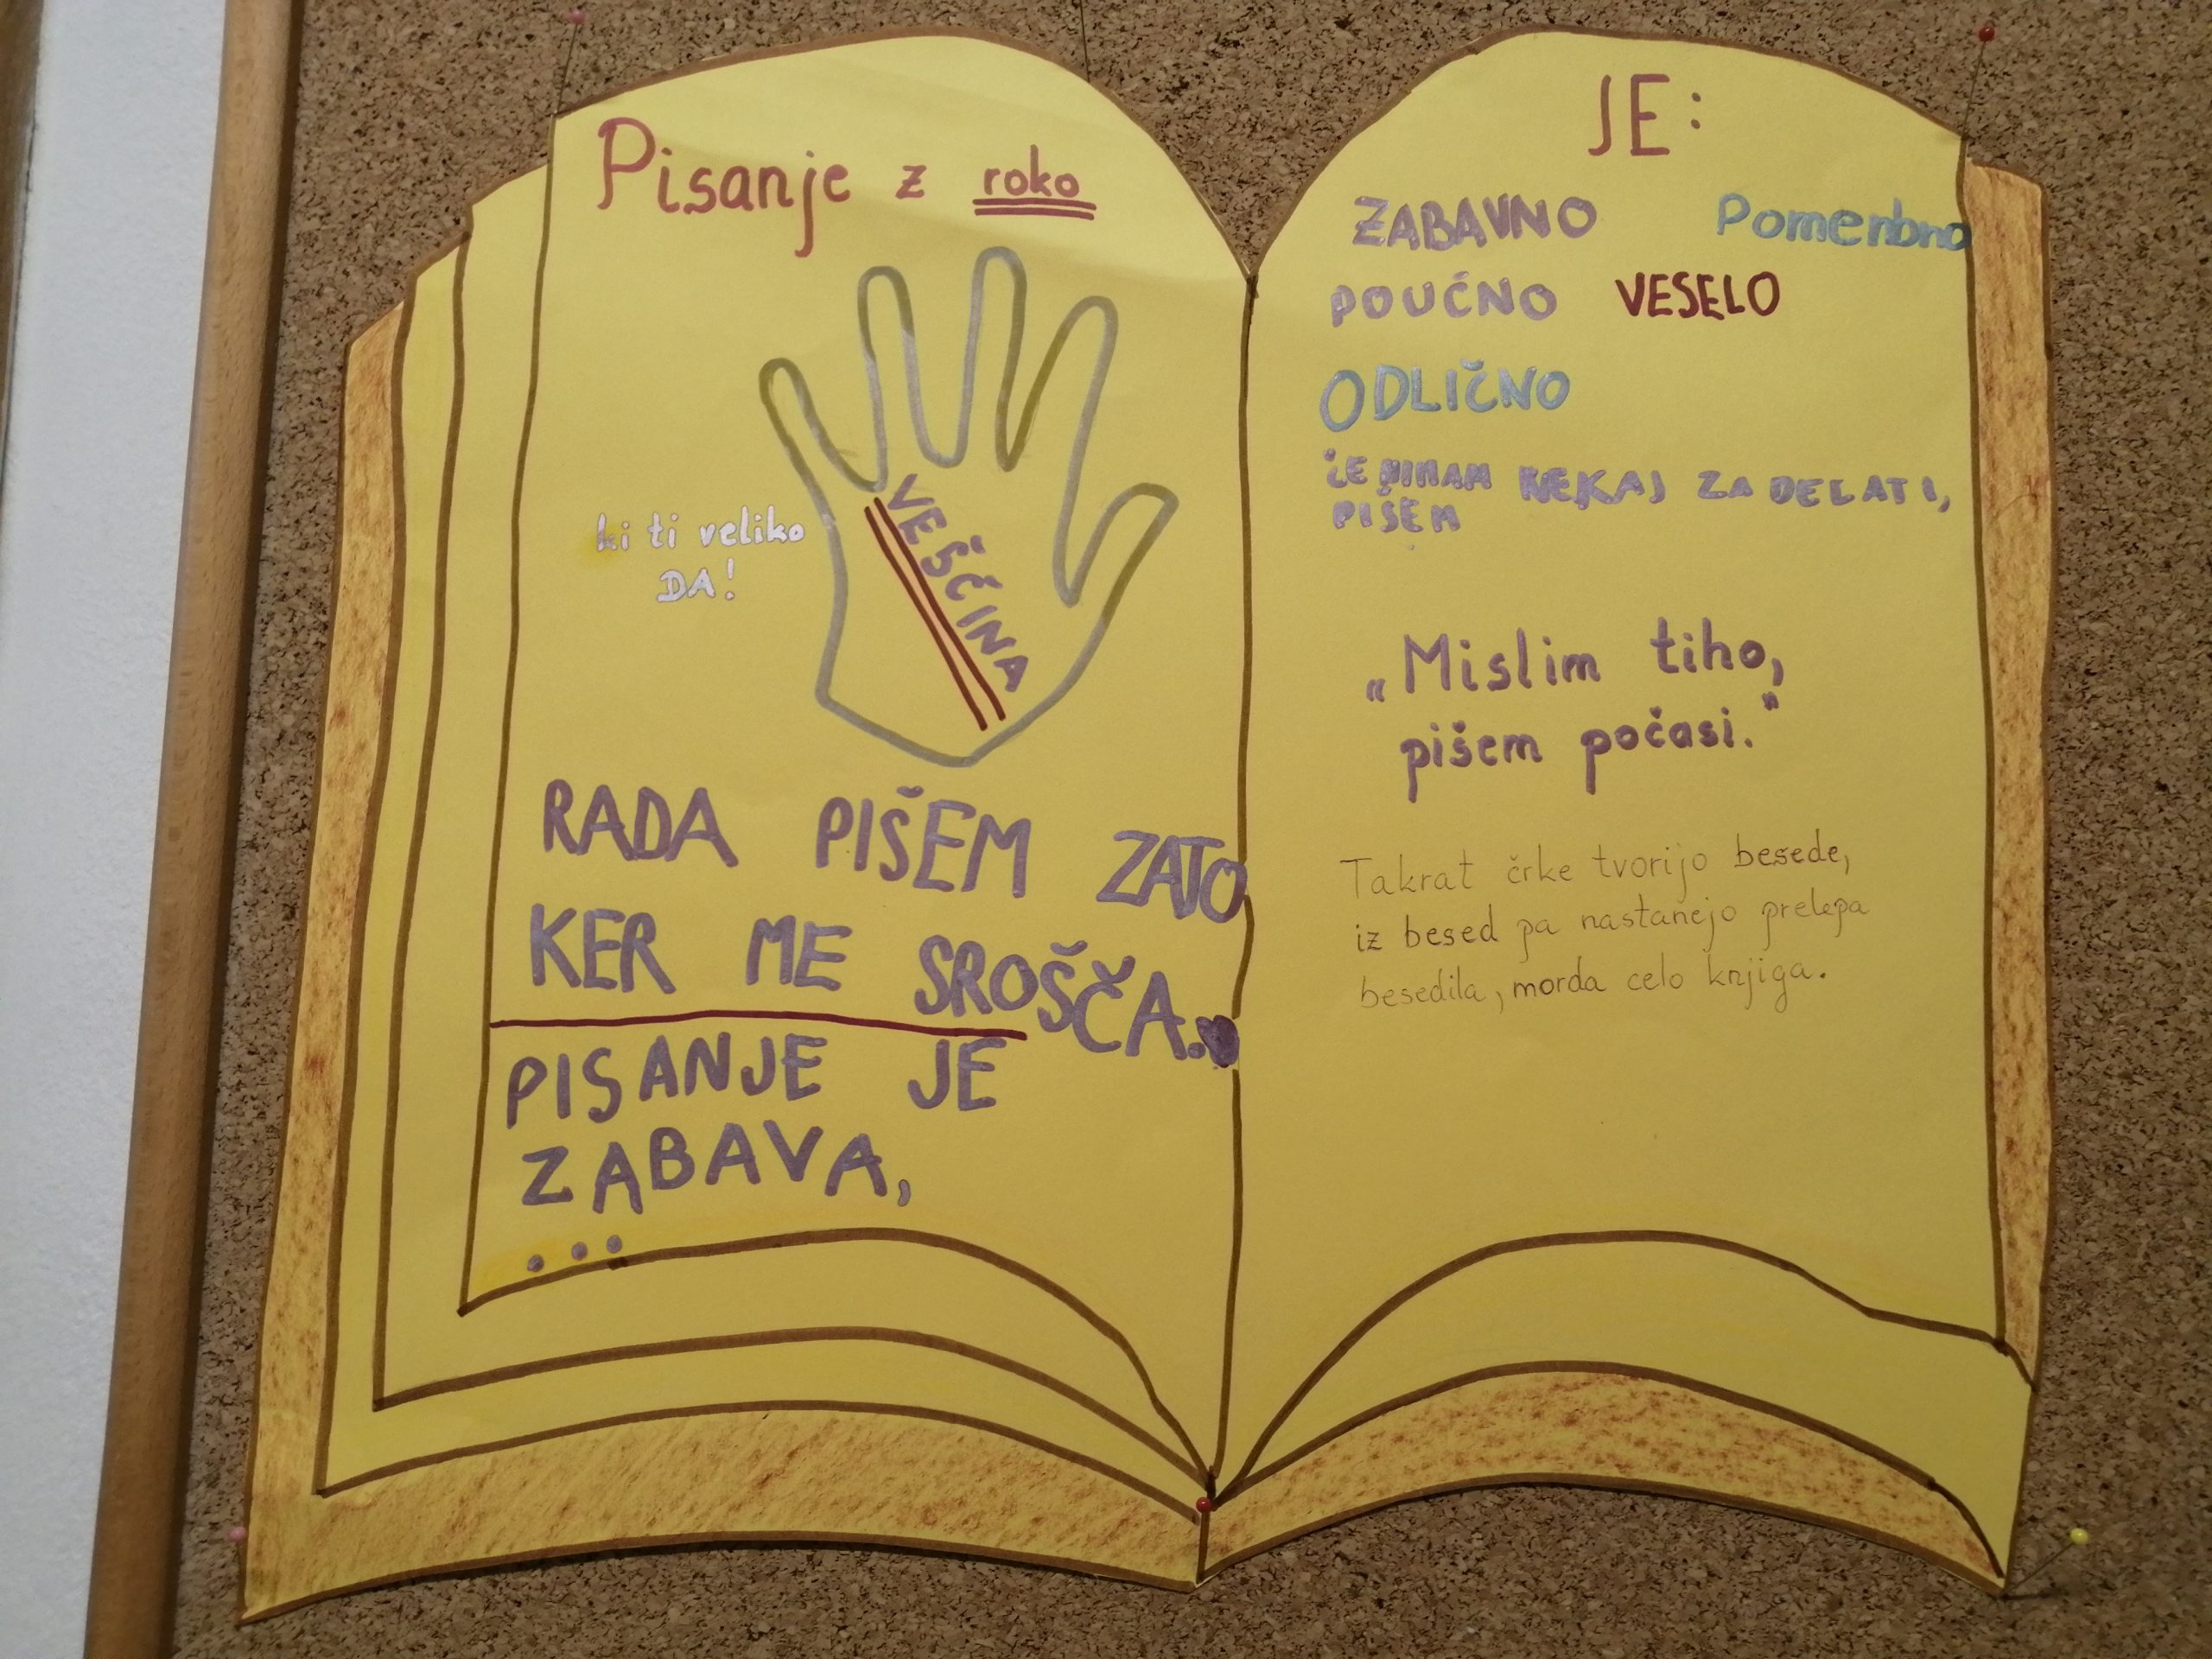 Pisanje z roko
VEŠČINA
ki ti veliko
DA!
RADA PIŠEM ZATO
KER ME SROŠČA.
PISANJE JE
ZABAVA,
...
JE:
ZABAVNO Pomenbno
POUČNO VESELO
ODLIČNO
ČE NIMAM NEKAJ ZA DELATI,
PIŠEM
„Mislim tiho,
pišem počasi."
Takrat črke tvorijo besede,
iz besed pa nastanejo prelepa
besedila, morda celo knjiga.